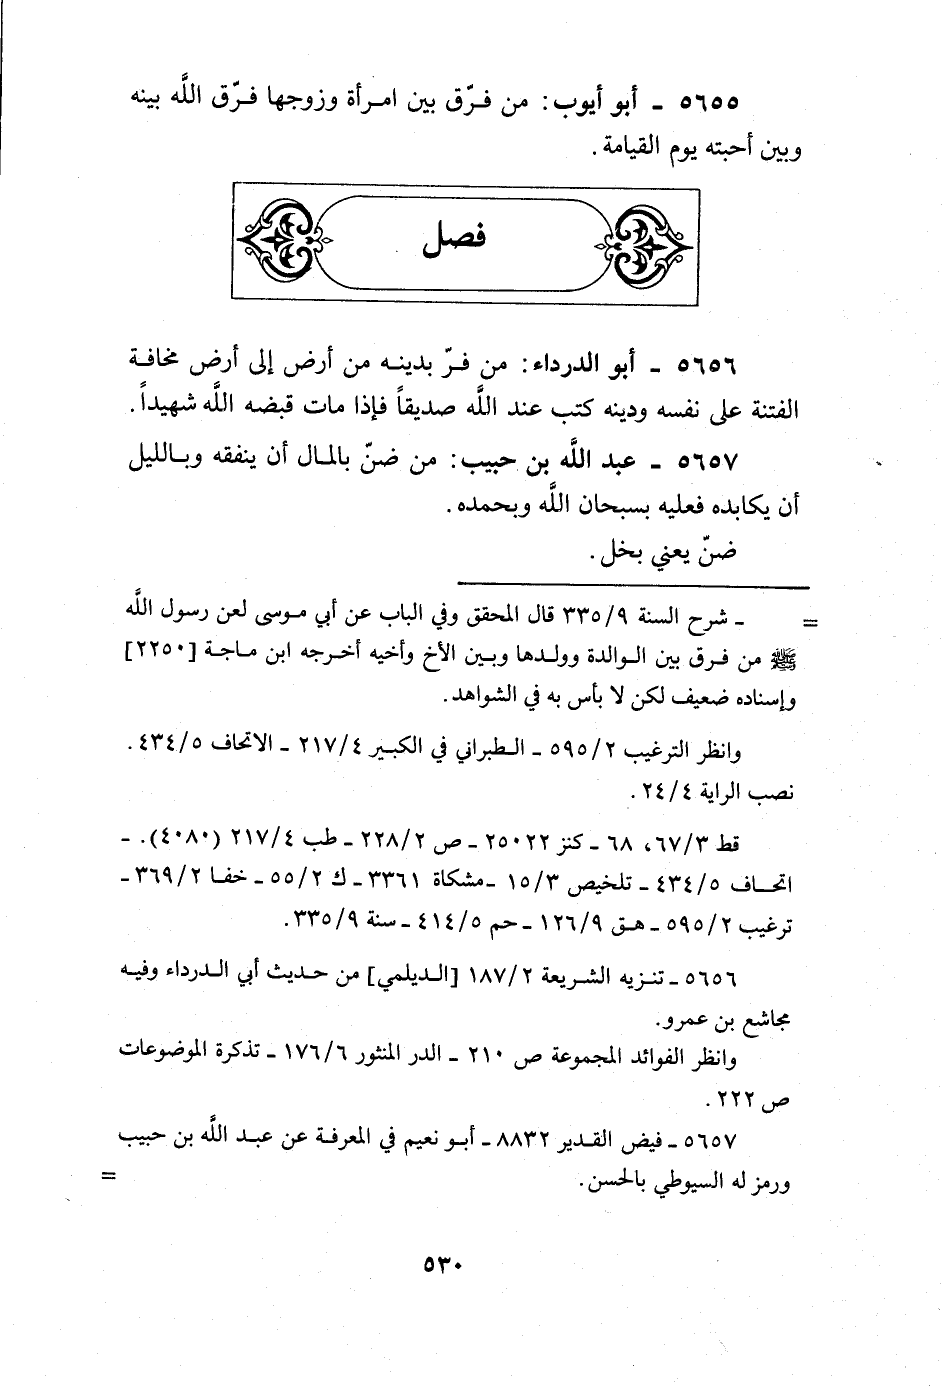 ٥٦٥٥ ـ أبو أيوب: من فرّق بين امرأة وزوجها فرّق الله بينه
وبين أحبته يوم القيامة.
فصل
٥٦٥٦ ـ أبو الدرداء: من فرّ بدينه من أرض إلى أرض مخافة
الفتنة على نفسه ودينه كتب عند الله صديقاً فإذا مات قبضه الله شهيداً.
٥٦٥٧ ـ عبد الله بن حبيب: من ضنّ بالمال أن ينفقه وبالليل
أن يكابده فعليه بسبحان الله وبحمده.
ضنّ يعني بخل.
= ـ شرح السنة ٣٣٥/٩ قال المحقق وفي الباب عن أبي موسى لعن رسول الله
ﷺ من فرق بين الوالدة وولدها وبين الأخ وأخيه أخرجه ابن ماجة [٢٢٥٠]
وإسناده ضعيف لكن لا بأس به في الشواهد.
وانظر الترغيب ٥٩٥/٢ ـ الطبراني في الكبير ٢١٧/٤ ـ الاتحاف ٤٣٤/٥.
نصب الراية ٢٤/٤.
قط ٦٧/٣، ٦٨ ـ كنز ٢٥٠٢٢ ـ ص ٢٢٨/٢ ـ طب ٢١٧/٤ (٤٠٨٠). ـ
اتحاف ٤٣٤/٥ ـ تلخيص ١٥/٣ ـ مشكاة ٣٣٦١ ـ ك ٥٥/٢ ـ خفا ٣٦٩/٢ ـ
ترغيب ٥٩٥/٢ ـ هق ١٢٦/٩ ـ حم ٤١٤/٥ ـ سنة ٣٣٥/٩.
٥٦٥٦ ـ تنزيه الشريعة ١٨٧/٢ [الديلمي] من حديث أبي الدرداء وفيه
مجاشع بن عمرو.
وانظر الفوائد المجموعة ص ٢١٠ ـ الدر المنثور ١٧٦/٦ ـ تذكرة الموضوعات
ص ٢٢٢.
٥٦٥٧ ـ فيض القدير ٨٨٣٢ ـ أبو نعيم في المعرفة عن عبد الله بن حبيب
ورمز له السيوطي بالحسن. =
٥٣٠